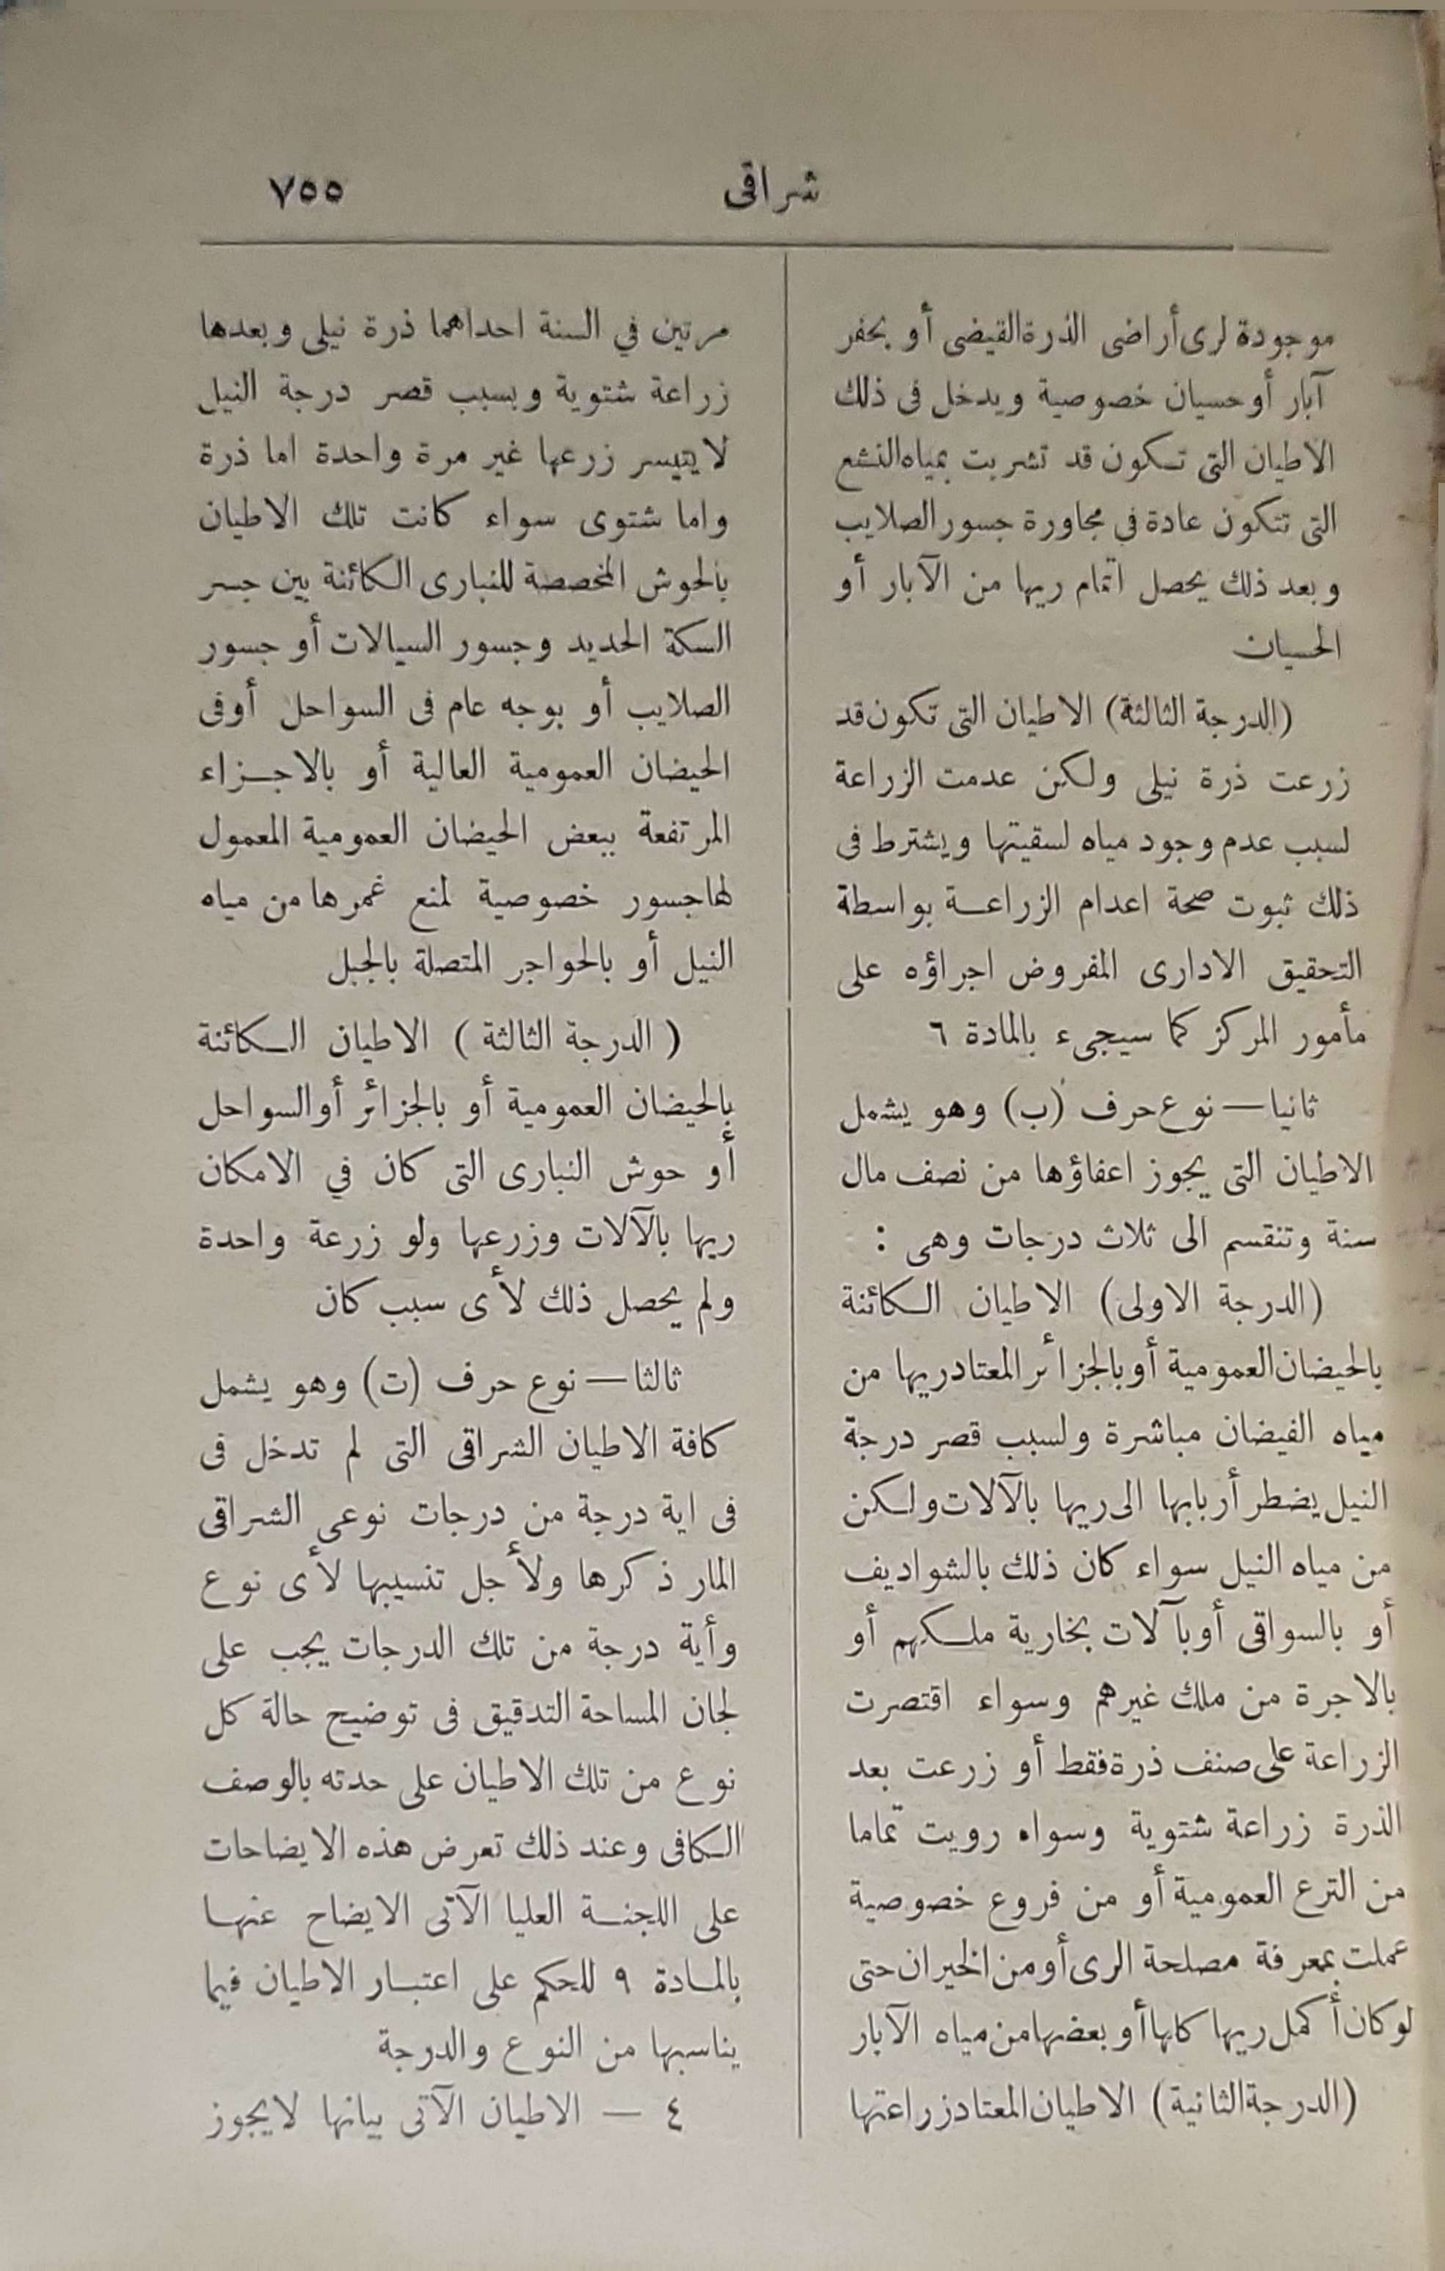 شراقى ٧٥٥
موجودة لرى أراضى الذرة القيضى أو بحفر
آبار أو حسيان خصوصية ويدخل فى ذلك
الاطيان التى تكون قد تشربت بمياه النشع
التى تتكون عادة فى مجاورة جسور الصلايب
وبعد ذلك يحصل اتمام ريها من الآبار أو
الحسيان
(الدرجة الثالثة) الاطيان التى تكون قد
زرعت ذرة نيلى ولكن عدمت الزراعة
لسبب عدم وجود مياه لسقيتها ويشترط فى
ذلك ثبوت صحة اعدام الزراعة بواسطة
التحقيق الادارى المفروض اجراؤه على
مأمور المركز كما سيجىء بالمادة ٦
ثانيا — نوع حرف (ب) وهو يشمل
الاطيان التى يجوز اعفاؤها من نصف مال
سنة وتنقسم الى ثلاث درجات وهى :
(الدرجة الاولى) الاطيان الكائنة
بالحيضان العمومية أو بالجزائر المعتاد ريها من
مياه الفيضان مباشرة ولسبب قصر درجة
النيل يضطر أربابها الى ريها بالآلات ولكن
من مياه النيل سواء كان ذلك بالشواديف
أو بالسواقى أو بآلات بخارية ملكهم أو
بالاجرة من ملك غيرهم وسواء اقتصرت
الزراعة على صنف ذرة فقط أو زرعت بعد
الذرة زراعة شتوية وسواء رويت تماما
من الترع العمومية أو من فروع خصوصية
عملت بمعرفة مصلحة الرى أو من الخيران حتى
لو كان أكمل ريها كلها أو بعضها من مياه الآبار
(الدرجة الثانية) الاطيان المعتاد زراعتها
مرتين في السنة احداهما ذرة نيلى وبعدها
زراعة شتوية وبسبب قصر درجة النيل
لا يتيسر زرعها غير مرة واحدة اما ذرة
واما شتوى سواء كانت تلك الاطيان
بالحوش المخصصة للنبارى الكائنة بين جسر
السكة الحديد وجسور السيالات أو جسور
الصلايب أو بوجه عام فى السواحل أو فى
الحيضان العمومية العالية أو بالاجزاء
المرتفعة ببعض الحيضان العمومية المعمول
لها جسور خصوصية لمنع غمرها من مياه
النيل أو بالحواجر المتصلة بالجبل
( الدرجة الثالثة ) الاطيان الكائنة
بالحيضان العمومية أو بالجزائر أو السواحل
أو حوش النبارى التى كان في الامكان
ريها بالآلات وزرعها ولو زرعة واحدة
ولم يحصل ذلك لأى سبب كان
ثالثا — نوع حرف (ت) وهو يشمل
كافة الاطيان الشراقى التى لم تدخل فى
فى اية درجة من درجات نوعى الشراقى
المار ذكرها ولأجل تنسيبها لأى نوع
وأية درجة من تلك الدرجات يجب على
لجان المساحة التدقيق فى توضيح حالة كل
نوع من تلك الاطيان على حدته بالوصف
الكافى وعند ذلك تعرض هذه الايضاحات
على اللجنة العليا الآتى الايضاح عنها
بالمادة ٩ للحكم على اعتبار الاطيان فيما
يناسبها من النوع والدرجة
٤ — الاطيان الآتى بيانها لا يجوز